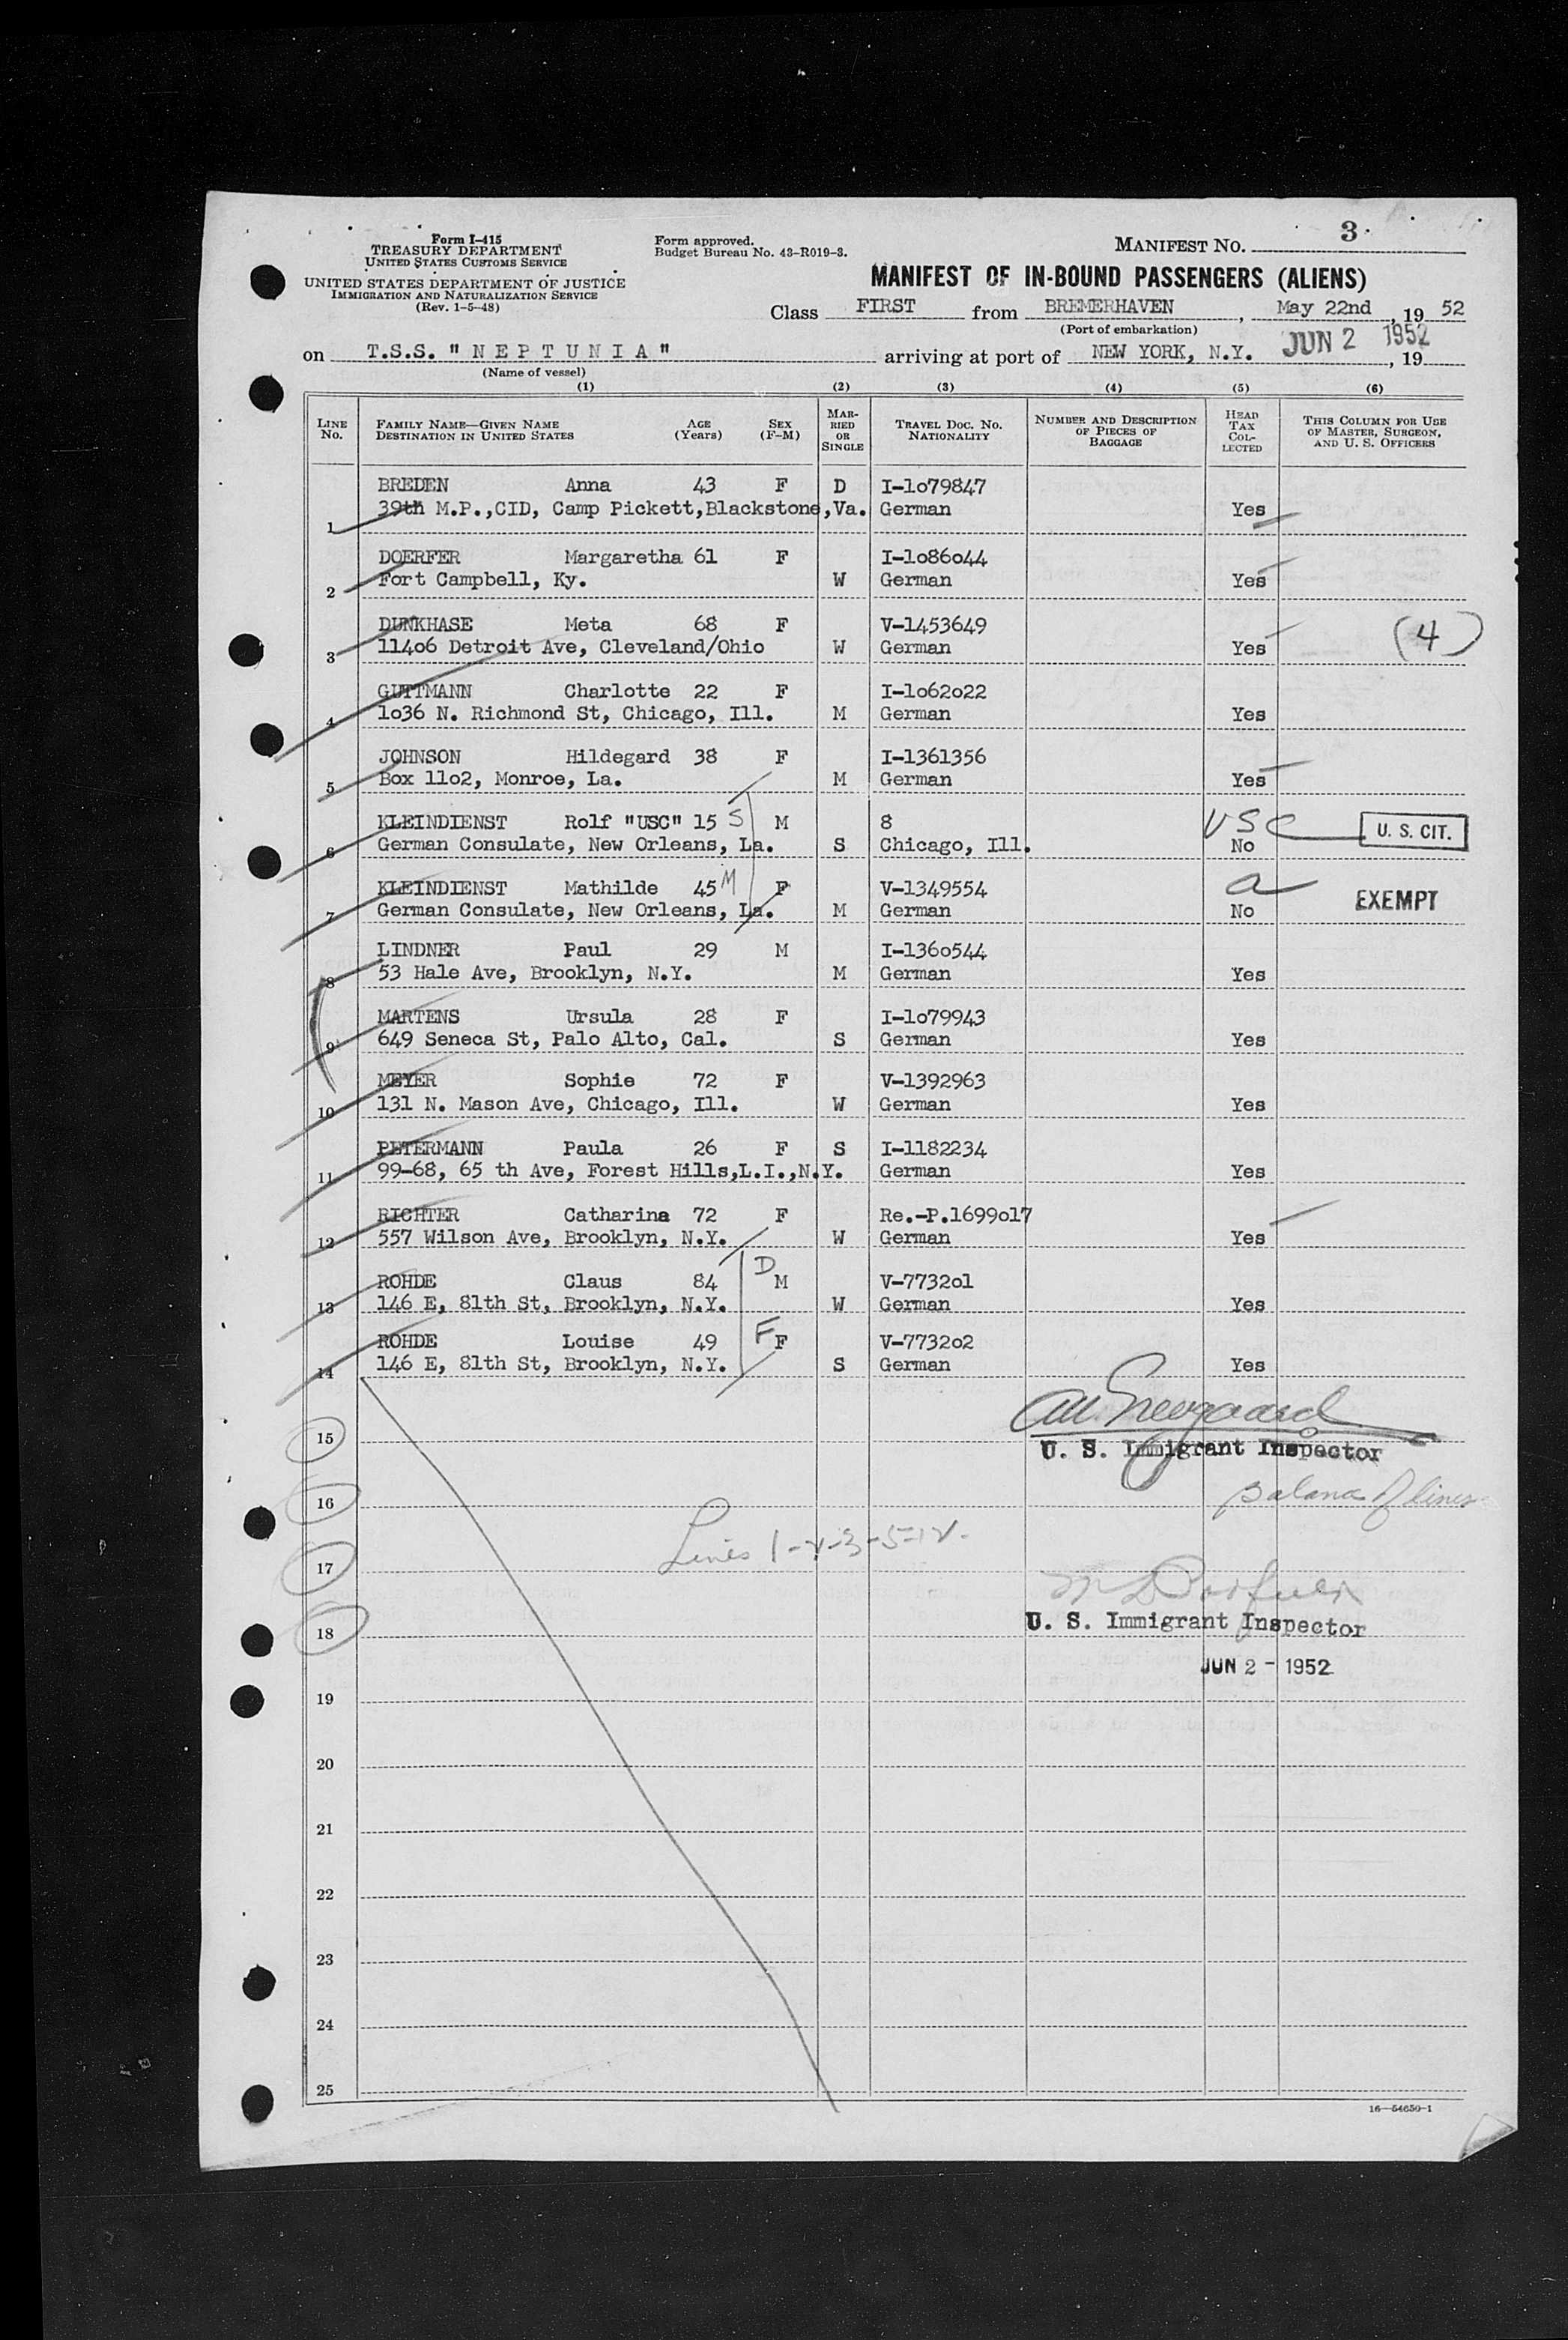 Form I-415
TREASURY DEPARTMENT
UNITED STATES CUSTOMS SERVICE
UNITED STATES DEPARTMENT OF JUSTICE
IMMIGRATION AND NATURALIZATION SERVICE
(Rev. 1-5-48)
Form approved.
Budget Bureau No. 43-R019-3.
MANIFEST NO. 3
MANIFEST OF IN-BOUND PASSENGERS (ALIENS)
Class FIRST from BREMERHAVEN, May 22nd, 19 52
(Port of embarkation)
on T.S.S. "NEPTUNIA" arriving at port of NEW YORK, N.Y. JUN 2 1952, 19
(Name of vessel)
(1) (2) (3) (4) (5) (6)
LINE NO. FAMILY NAME—GIVEN NAME DESTINATION IN UNITED STATES AGE (YEARS) SEX (F-M) MARRIED OR SINGLE TRAVEL DOC. NO. NATIONALITY NUMBER AND DESCRIPTION OF PIECES OF BAGGAGE HEAD TAX COLLECTED THIS COLUMN FOR USE OF MASTER, SURGEON, AND U. S. OFFICERS
BREDEN Anna 43 F D I-1o79847
1 39th M.P.,CID, Camp Pickett,Blackstone,Va. German Yes
DOERFER Margaretha 61 F I-1o86o44
2 Fort Campbell, Ky. W German Yes
DUNKHASE Meta 68 F V-1453649
3 114o6 Detroit Ave, Cleveland/Ohio W German Yes (4)
GUTTMANN Charlotte 22 F I-1o62o22
4 1o36 N. Richmond St, Chicago, Ill. M German Yes
JOHNSON Hildegard 38 F I-1361356
5 Box 11o2, Monroe, La. M German Yes
KLEINDIENST Rolf "USC" 15 S M 8 USC U. S. CIT.
6 German Consulate, New Orleans, La. S Chicago, Ill. No
KLEINDIENST Mathilde 45 M F V-1349554 a EXEMPT
7 German Consulate, New Orleans, La. M German No
LINDNER Paul 29 M I-136o544
8 53 Hale Ave, Brooklyn, N.Y. M German Yes
MARTENS Ursula 28 F I-1o79943
9 649 Seneca St, Palo Alto, Cal. S German Yes
MEYER Sophie 72 F V-1392963
10 131 N. Mason Ave, Chicago, Ill. W German Yes
PETERMANN Paula 26 F S I-1182234
11 99-68, 65 th Ave, Forest Hills,L.I.,N.Y. German Yes
RICHTER Catharina 72 F Re.-P.1699o17
12 557 Wilson Ave, Brooklyn, N.Y. W German Yes
ROHDE Claus 84 D M V-7732o1
13 146 E, 81th St, Brooklyn, N.Y. W German Yes
ROHDE Louise 49 F F V-7732o2
14 146 E, 81th St, Brooklyn, N.Y. S German Yes
15
U. S. Immigrant Inspector
16 Balance of lines
Lines 1-2-3-5-12-
17
18 U. S. Immigrant Inspector
JUN 2 - 1952
19
20
21
22
23
24
25
16—54650-1